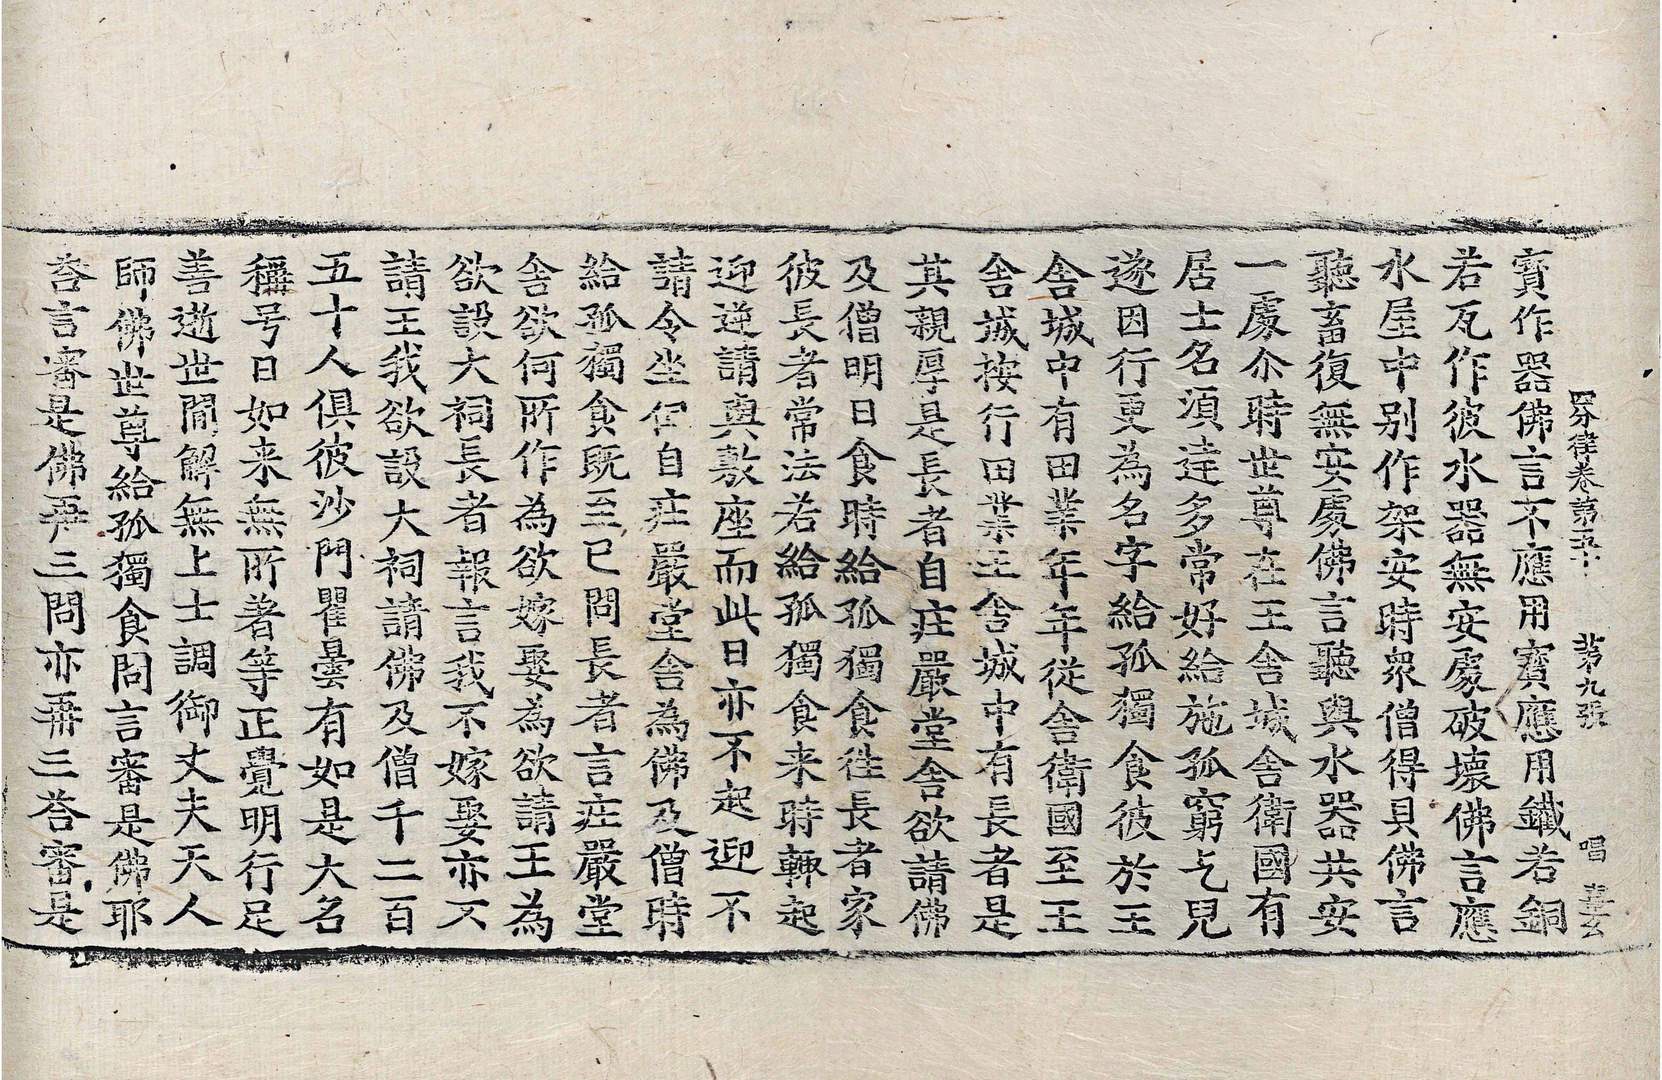 四分律卷第五十 第九張 唱
寳作器佛言不應用寳應用鐵若銅
若瓦作彼水器無安處破壞佛言應
水屋中别作架安時衆僧得貝佛言
聽畜復無安處佛言聽與水器共安
一處尒時世尊在王舍城舍衛國有
居士名湏達多常好給施孤窮乞兒
遂因行更為名字給孤獨食彼於王
舍城中有田業年年從舍衛國至王
舍城按行田業王舍城中有長者是
其親厚是長者自庄嚴堂舍欲請佛
及僧明日食時給孤獨食徃長者家
彼長者常法若給孤獨食来時輙起
迎逆請與敷座而此日亦不起迎不
請令坐但自庄嚴堂舍為佛及僧時
給孤獨食既至已問長者言庄嚴堂
舍欲何所作為欲嫁娶為欲請王為
欲設大祠長者報言我不嫁娶亦不
請王我欲設大祠請佛及僧千二百
五十人俱彼沙門瞿曇有如是大名
稱号曰如来無所著等正覺明行足
善逝世間解無上士調御丈夫天人
師佛世尊給孤獨食問言審是佛耶
荅言審是佛再三問亦再三荅審是